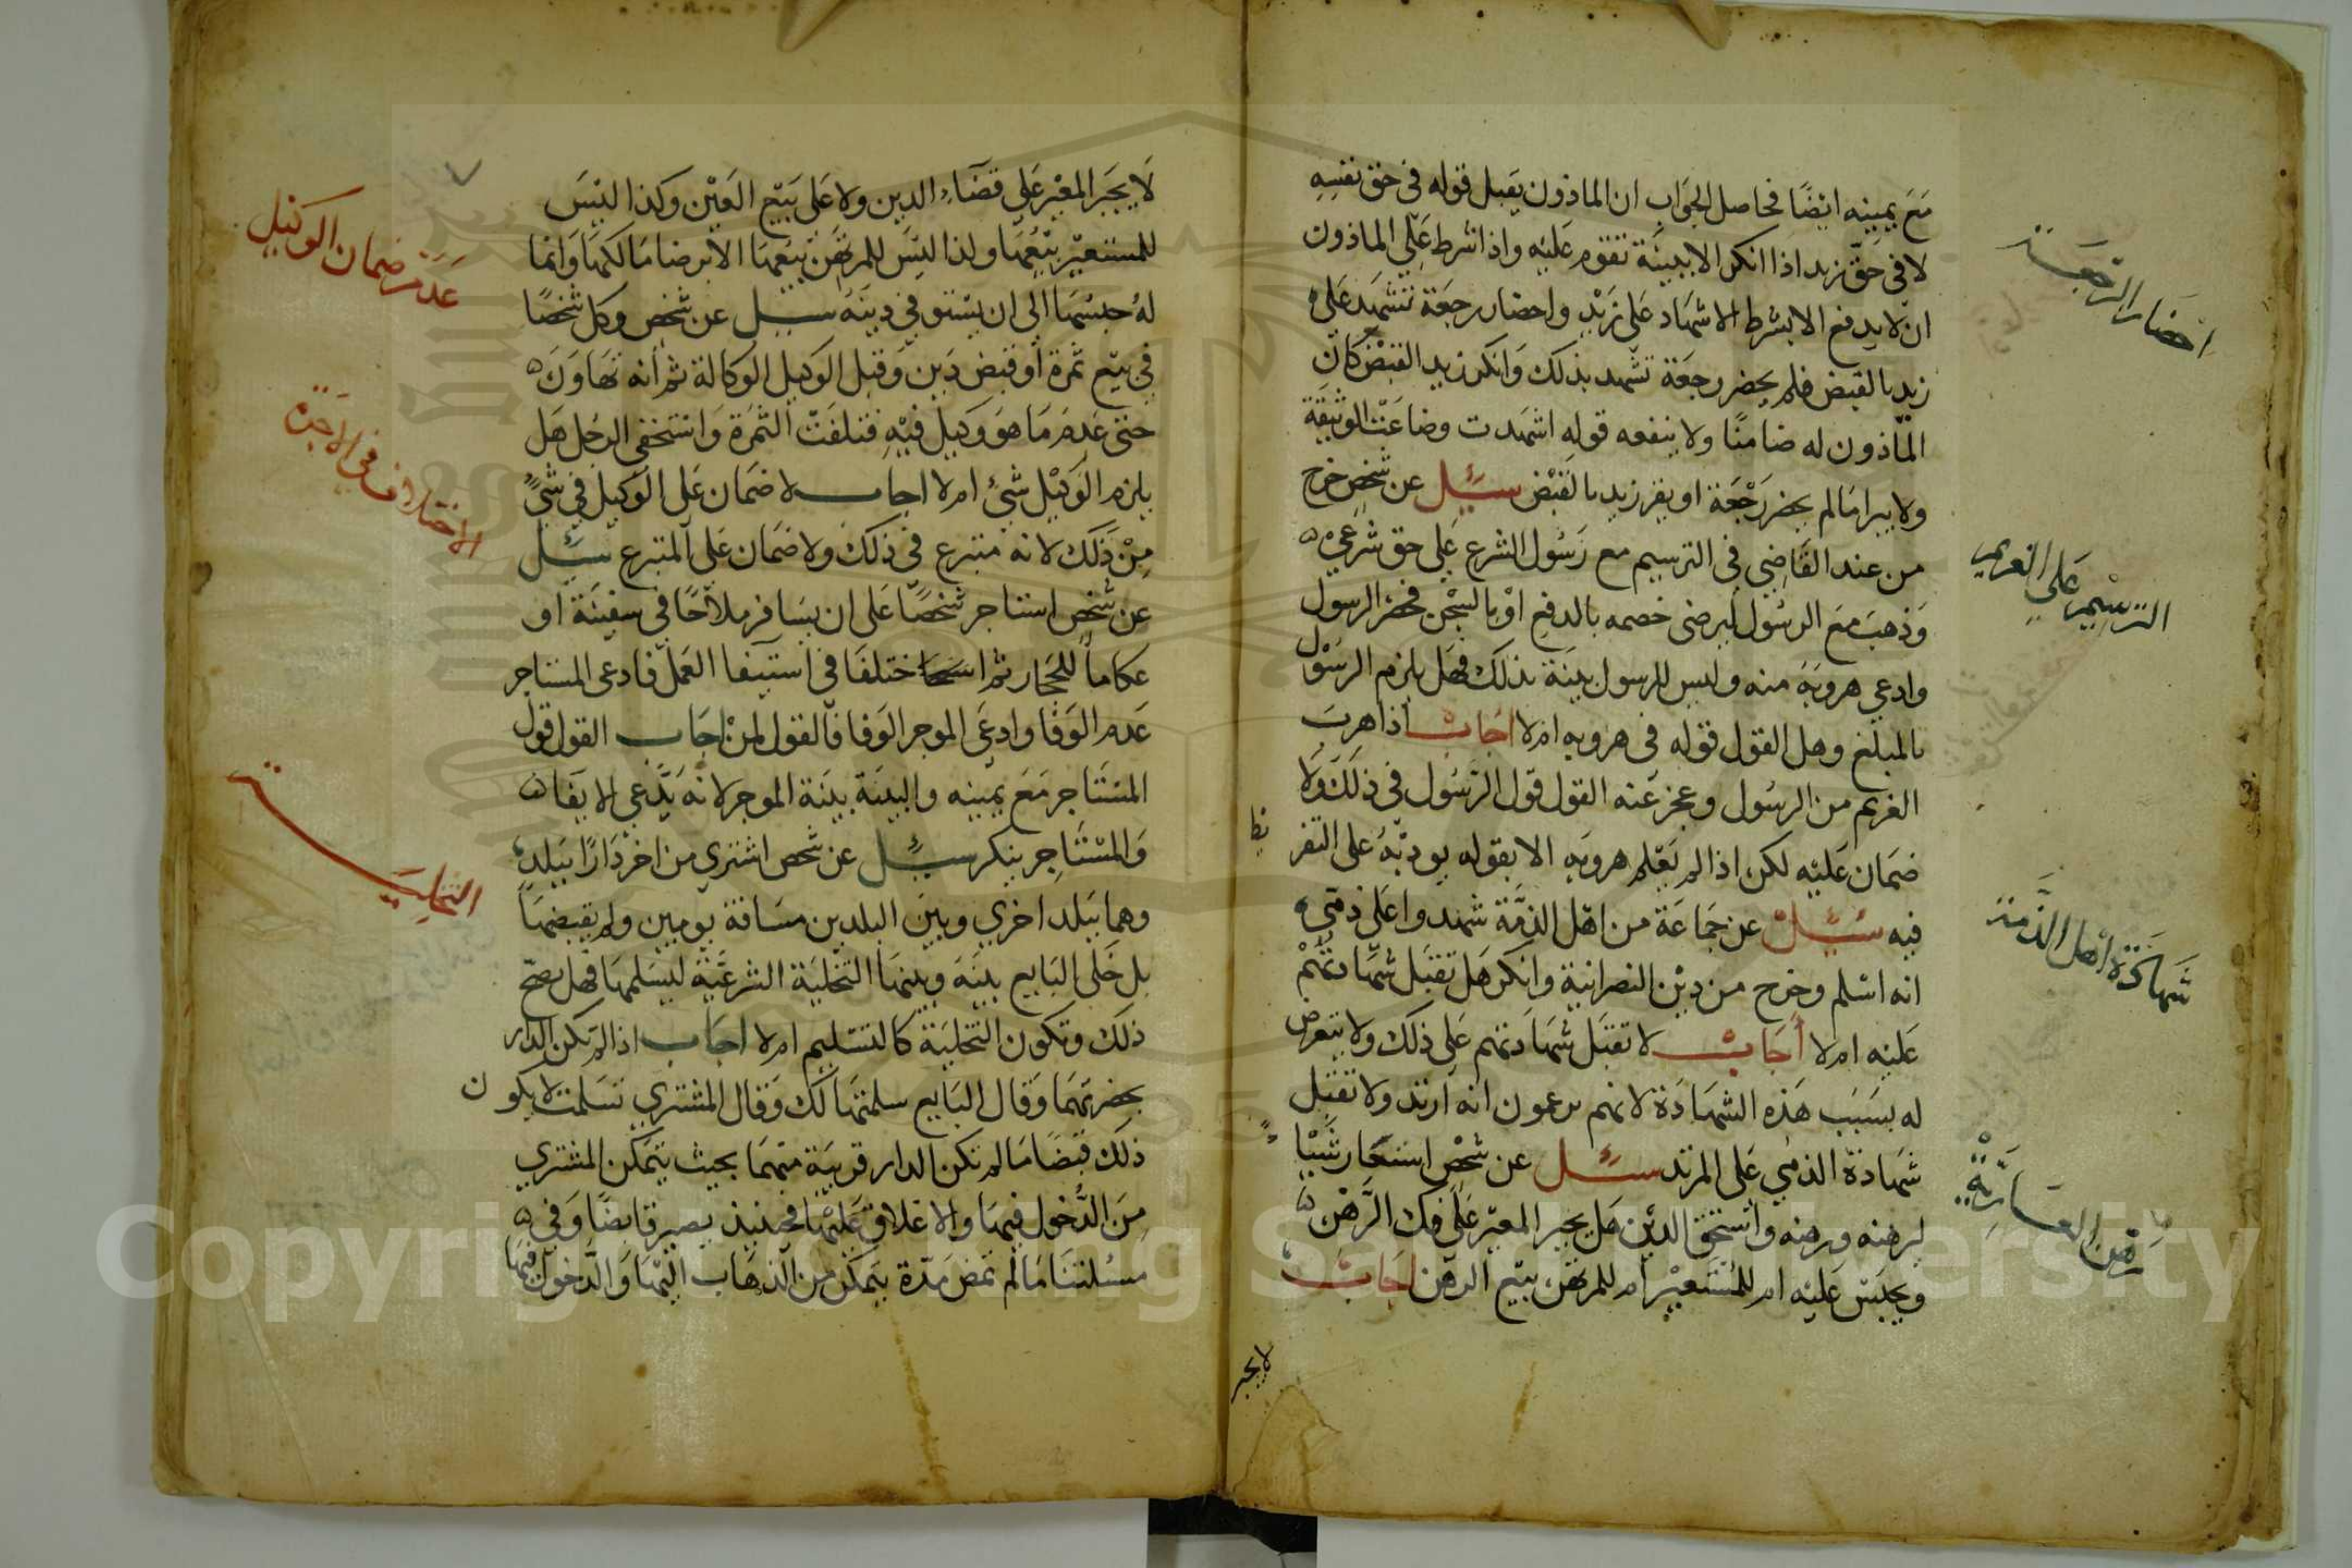 مَعَ يمينه ايضًا فحاصل الجَوَاب ان الماذون يَقبل قوله في حق نفسِهِ
لا في حَقّ زيد اذا انكر الا ببينَة تقوم عَليْه واذا شرط عَلَى الماذون
ان لا يدفع الا بشرط الاشهَاد عَلى زَيْد واحضار رجعَة تشهَد عَلى
زيد بالقبض فلم يحضر رجعَة تشهد بذلك وَانكر زيد القبْض كانَ
المَاذون له ضامنًا ولا ينفعه قوله اشهَدت وضاعَت الوثيقَة
ولا يبرا مَا لم يحضر رَجْعَة او يقر زيد بالقَبْض سئِل عن شخص خرج
من عند القَاضِي في الترسيم مع رَسُول الشرع عَلى حق شَرْعيّ
وَذهبَ مَعَ الرسُول ليرضى خصمه بالدفع اوْ بالسِجْن فحضر الرسول
وادعى هروبَهُ منه وليس للرسول بينَة بذلك فهَل يلزم الرسَوْل
بالمبلغ وهل القول قوله في هروبه ام لا اجَابْ اذا هربَ
الغريم من الرسُول وعجز عَنه القول قول الرَسُول في ذلك وَلا
ضمَان عَليْه لكن اذا لم يَعْلم هروبَه الا بقوله يودّبهُ على التفر
يط
فيه سُئِلَ عن جمَاعَة من اهْل الذمَّة شهدوا عَلى ذمّي
انه اسْلم وخرج من دِيْن النصرانية وانكر هَل تقبَل شهَادتهُمْ
عَليْه ام لا أجَابْ لا تقبَل شهَادَتهم عَلى ذلك ولا يتعرض
له بسَبَب هَذه الشهَادَة لانهم يزعمون انه ارتد ولا تقبَل
شهَادة الذمي عَلى المرتد سئل عن شخْص استعَار شَيْيًا
ليرهنه ورهنه واستحق الديْن هَل يجبر المعيْر عَلَى فك الرَّهْن
ويحبَسْ عَليْه ام للمُسْتعيْر ام للمرتهن بيْع الرهَن اجَابْ
لا يجبر
احضَار الرجعَة
الترسِيْم عَلى الغريم
شهَادَة اهل الذّمة
رَهن العَارِيَّة
لَا يجبَر المعيْر عَلى قضَاءِ الدين ولا عَلى بَيْع العَيْن وكذا ليْسَ
للمستعيْر بيْعُهَا ولذا ليْسَ للمرتهَن بَيْعهَا الا برضا مَالكهَا وَانما
لهُ حبْسُهَا الى ان يسْتوفي دينَهُ سئل عن شخص وكل شخصًا
في بَيْع ثمرَة اوْ قبض دَين وَقبل الوَكيل الوَكالة ثم أنه تهَاوَن
حتى عَدم مَا هوَ وَكيل فيْهِ فتلفَتْ الثمَرَة وَاسْتخفى الرجُل هَل
يلزم الوَكيْل شيْءٌ ام لا اجاب لا ضمَان عَلى الوَكيل في شيْءٍ
مِنْ ذَلك لانه متبرع في ذلكَ ولا ضمَان عَلى المتبرع سئِلَ
عن شخص استاجر شخصًا عَلى ان يسَافر ملاّحًا في سفينَة او
عكاماً للحجَاز ثم اختلفَا في استيفا العَمَل فادعى المستاجر
عَدم الوَفا وادعَى الموجر الوَفا فالقول لمنْ اجَاب القول قول
المسْتَاجر مَعَ يمينه والبينَة بينَة الموجر لانهُ يَدَّعي الايفَا
وَالمسْتَاجِر ينكر سئِل عن شخص اشتري من اخر دَارًا ببَلد
وهما ببَلد اخري وبين البلدين مسَافة يوْمين ولم يقبضهَا
بل خَلى البَايع بينَهَ وبينهَا التخليَة الشرعيَّة ليسَلمهَا فهَل يصحّ
ذلكَ وتكون التخليَة كالتسْليم ام لا اجَاب اذا لم تكن الدار
بحضرتهمَا وَقال البَايع سلمتهَا لك وَقال المشتري تسَلمت لا يكون
ذلكَ قبْضًا مَا لم تكن الدار قريبَة منهمَا بحيث يتمكن المشتري
مِنَ الدُّخول فيهَا والاغلاق عَليْهَا فحينيذ يصير قابضًا وَفي
مسْئلتنَا مَا لم تمض مدّة يتمكن من الذهَاب اليْهَا وَالدَّخول فيهَا
عَدَم ضمان الوكيل
الاختلاف في الاجرَة
التخليَــة
Copyright © King Saud University